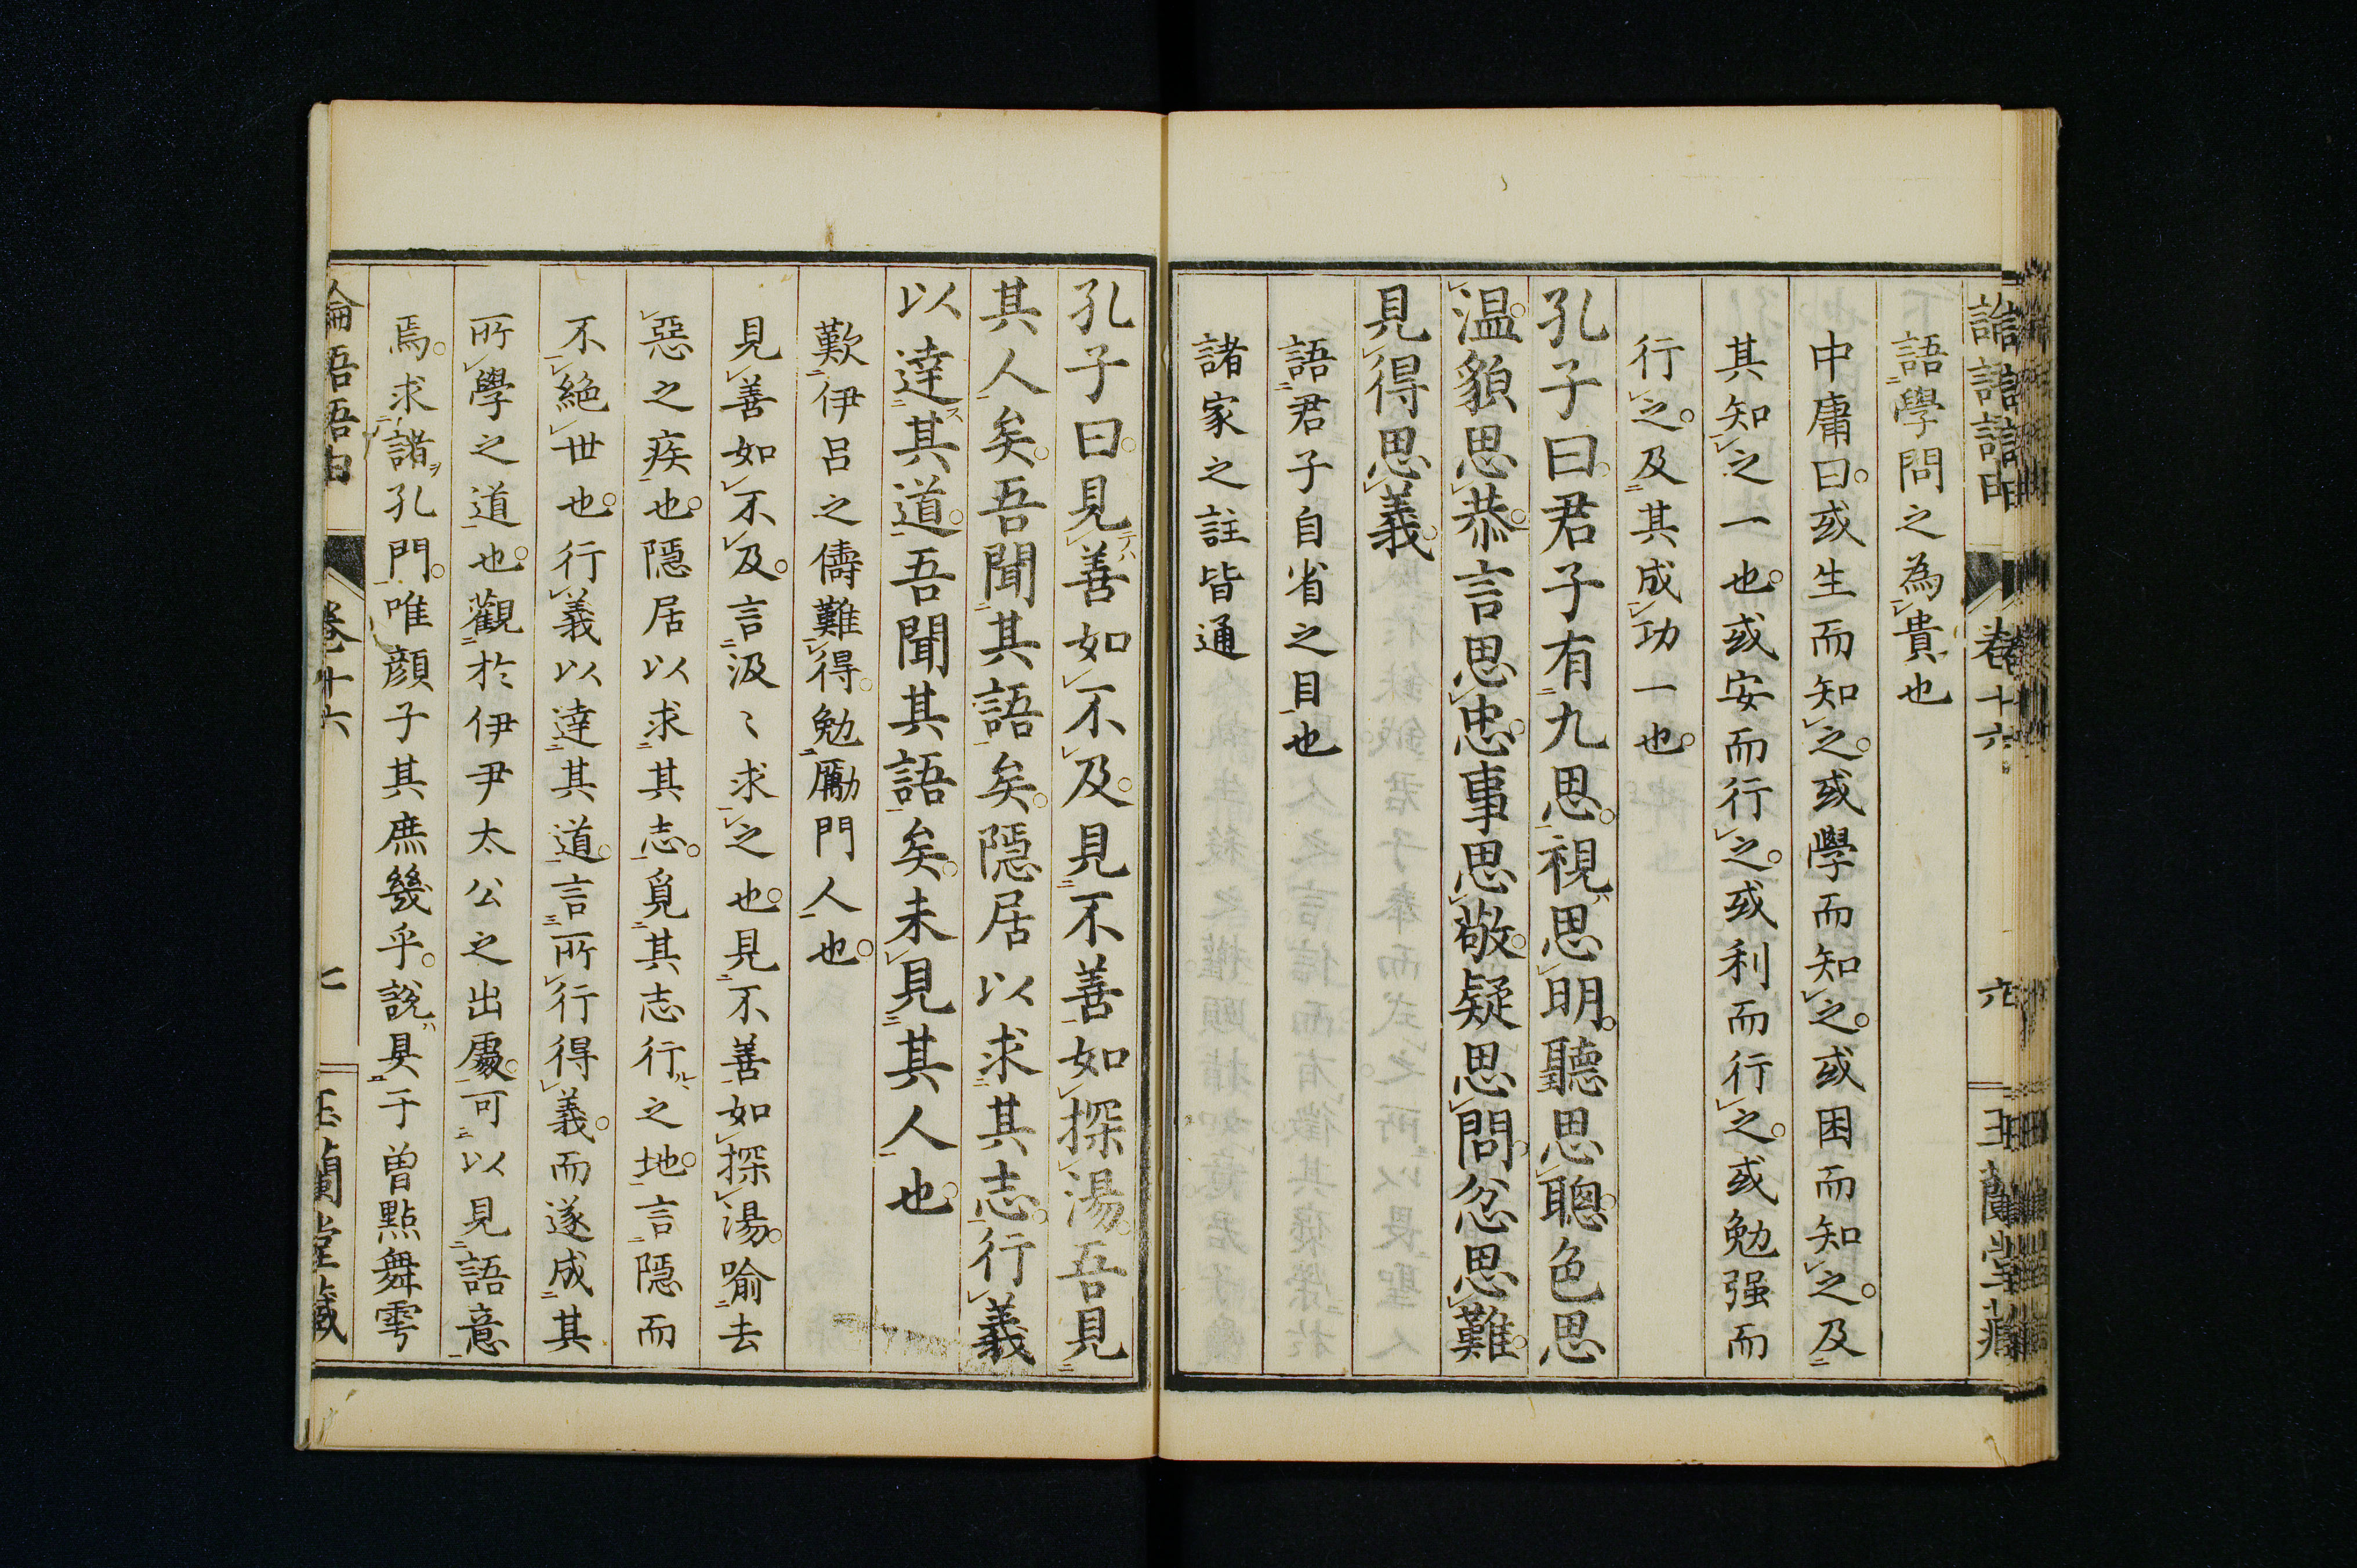 語學問之為貴也
中庸曰或生而知之或學而知之或困而知之及
其知之一也或安而行之或利而行之或勉强而
行之及其成功一也
孔子曰君子有九思視思明聽思聰色思
溫貌思恭言思忠事思敬疑思問忿思難
見得思義
語君子自省之目也
諸家之註皆通
孔子曰見善如不及見不善如探湯吾見
其人矣吾聞其語矣隱居以求其志行義
以達其道吾聞其語矣未見其人也
歎伊呂之儔難得勉勵門人也
見善如不及言汲〻求之也見不善如探湯喻去
惡之疾也隱居以求其志覓其志行之地言隱而
不絶世也行義以達其道言所行得義而遂成其
所學之道也觀於伊尹太公之出處可以見語意
焉求諸孔門唯顏子其庶幾乎說具于曽點舞雩
論語語由 卷十六 七 玉蘭堂藏